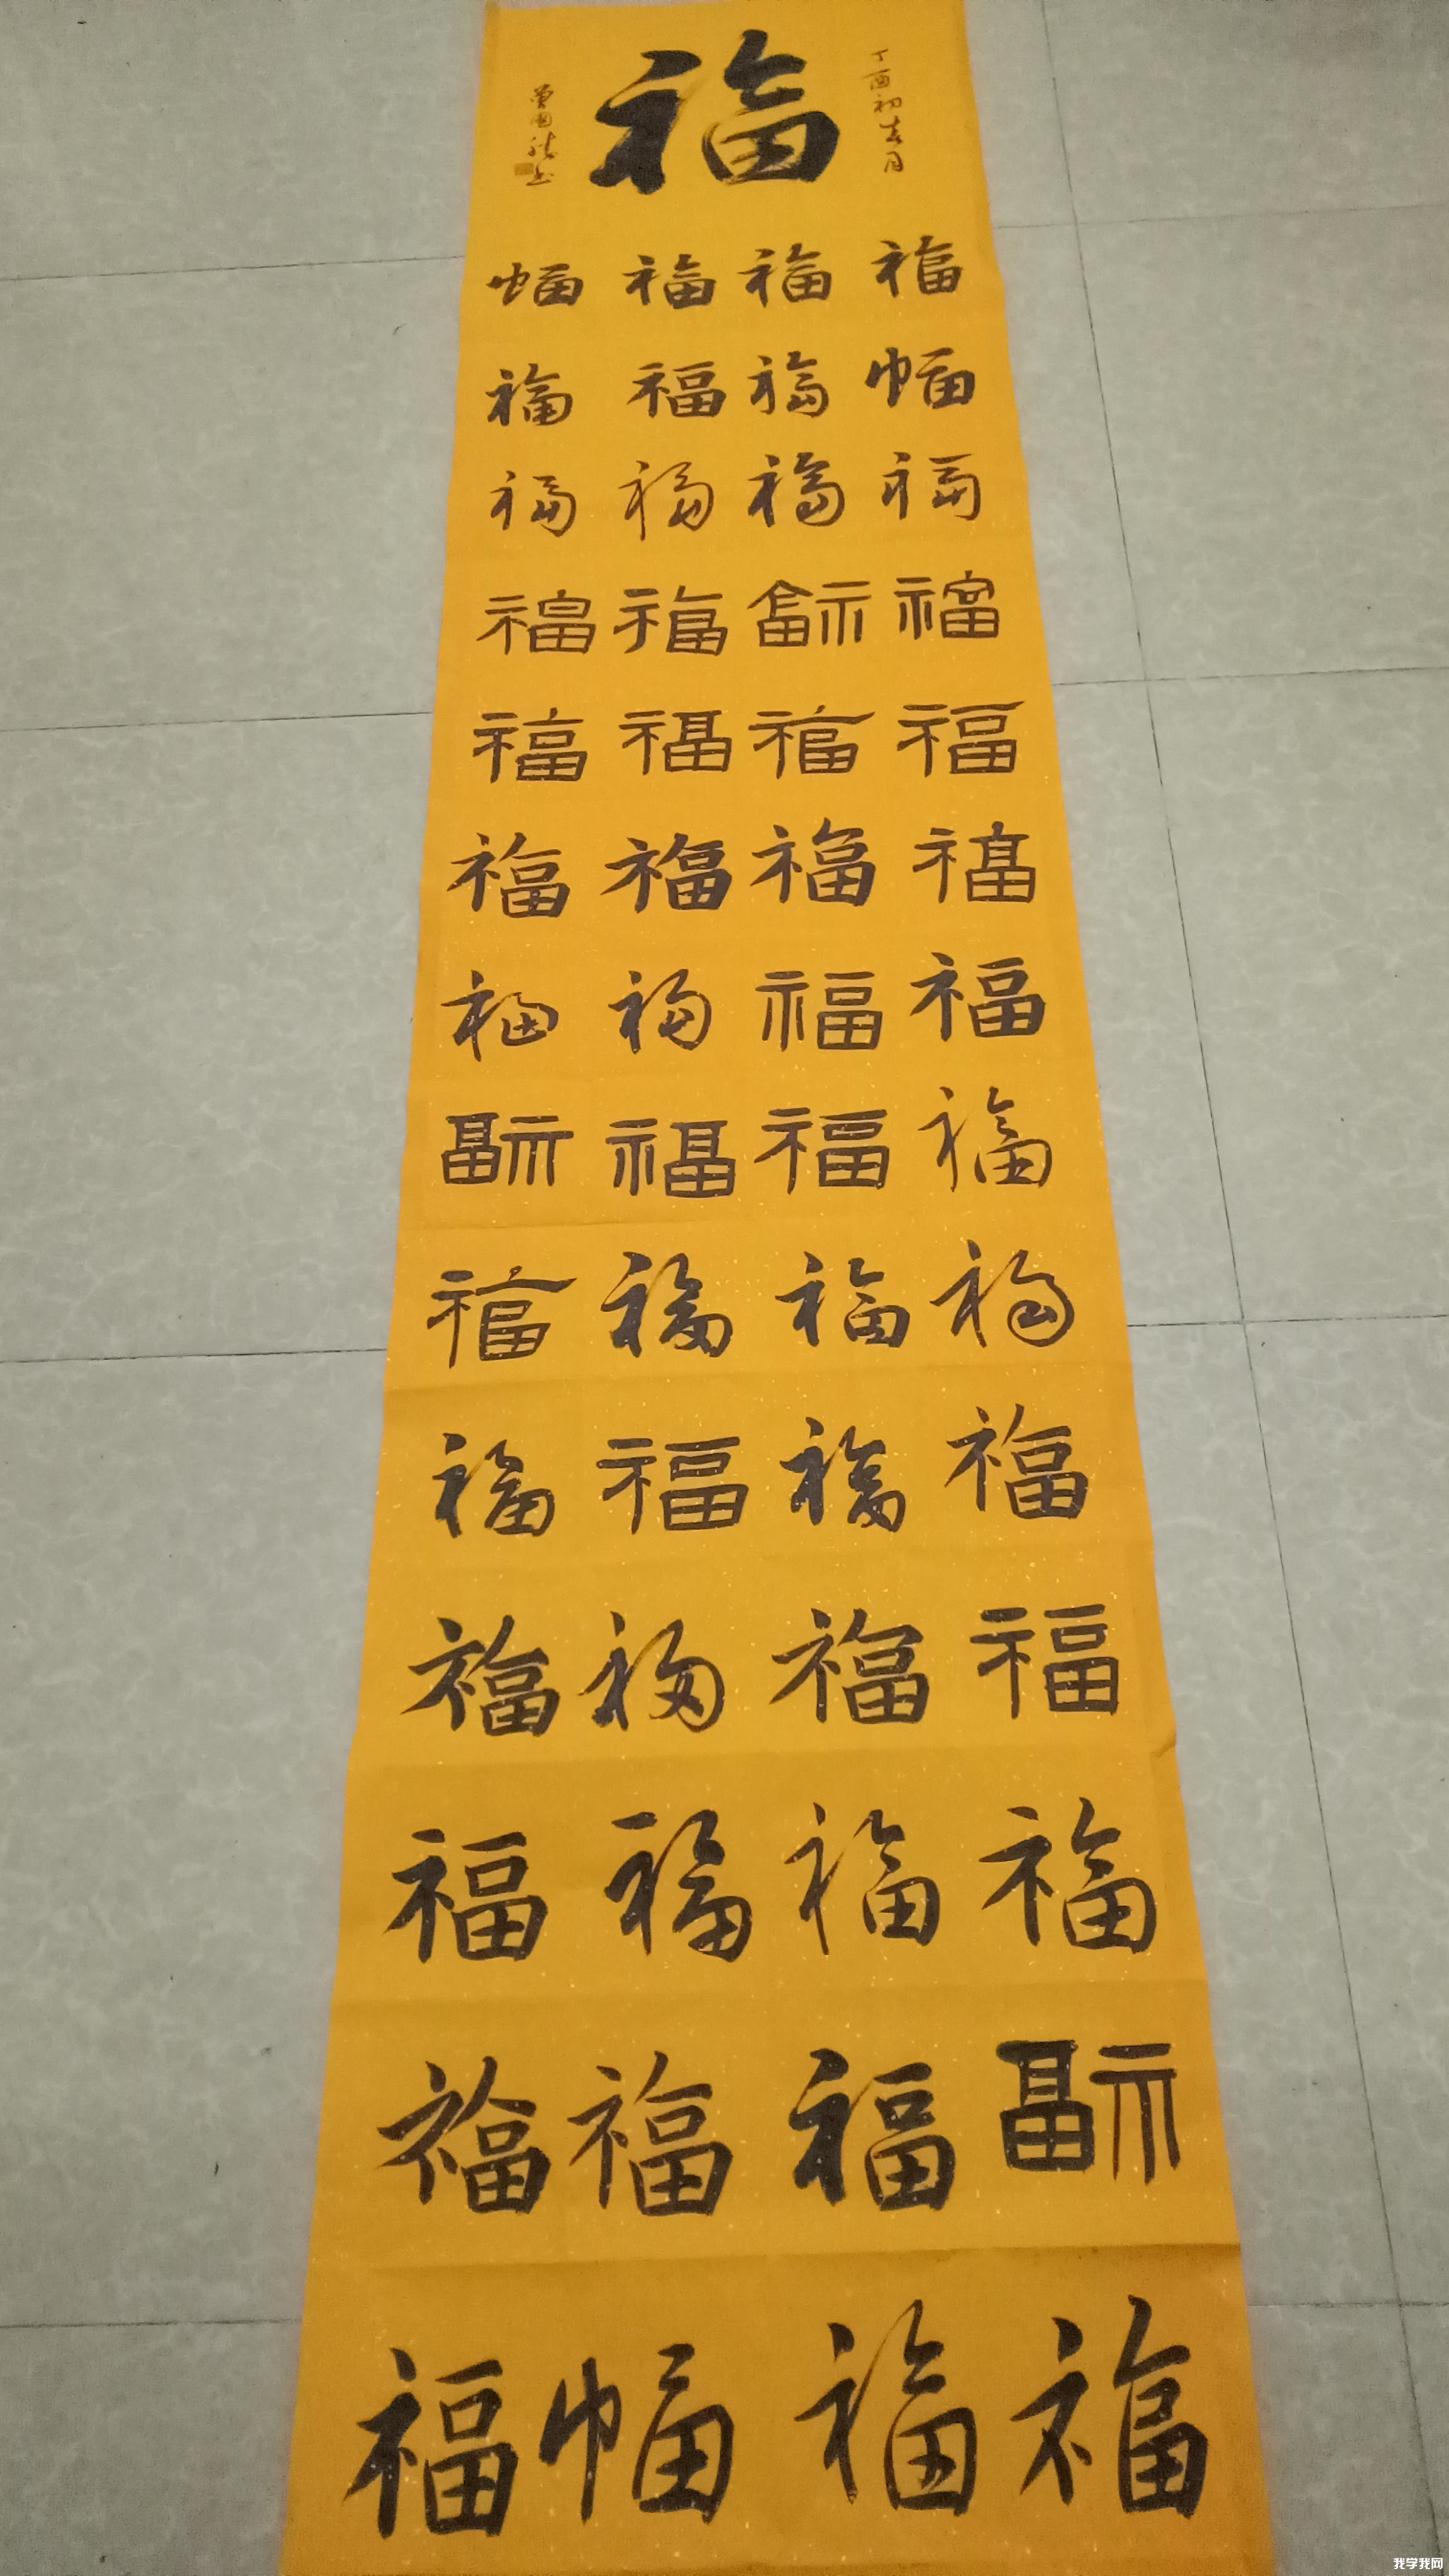 福
丁酉初
曾国
幅福福福
福福福幅
福福福福
福福福福
福福福福
福福福福
福福福福
福福福福
福福福福
福福福福
福福福福
福福福福
福福福福
福幅福福
我学我网